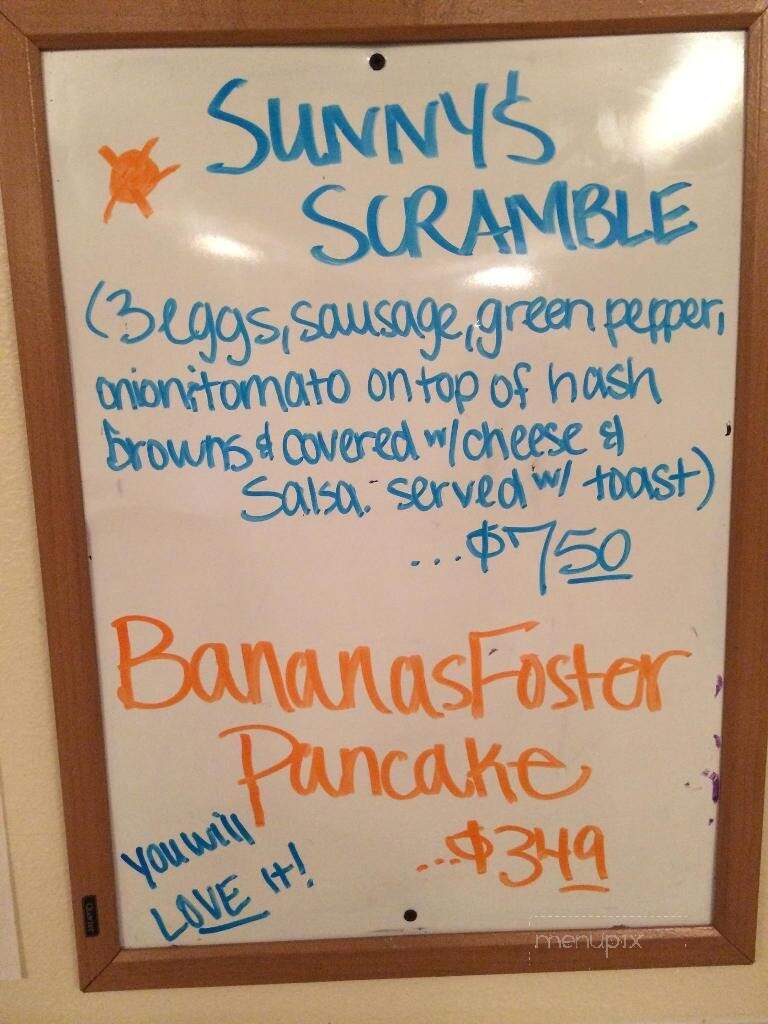 SUNNY'S
SCRAMBLE
(3 eggs, sausage, green pepper,
onion, tomato on top of hash
browns & covered w/ cheese &
Salsa. served w/ toast)
...$7 50
Bananas Foster
Pancake
...$3 49
You will
LOVE it!
Quartet
menupix